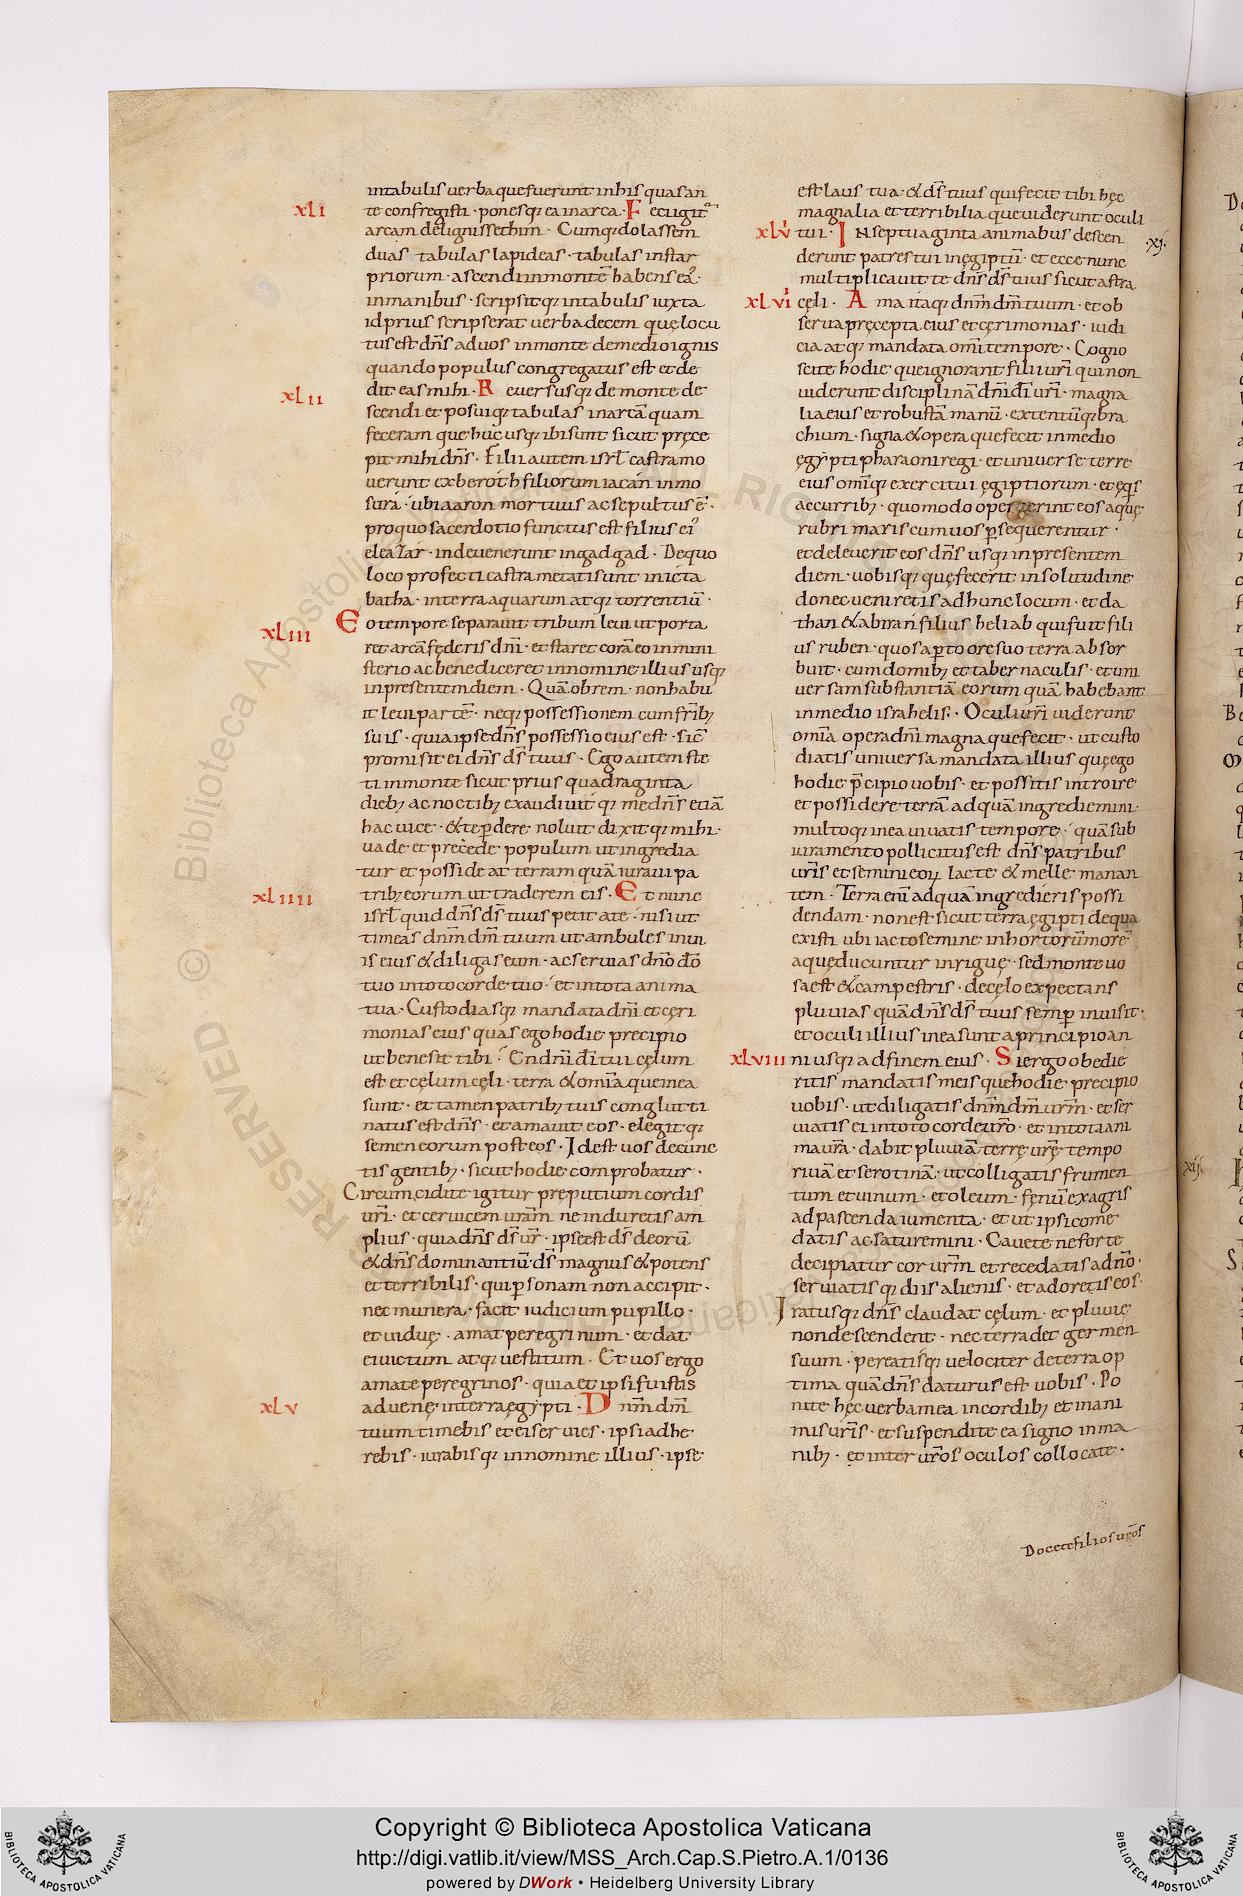 in tabulis uerba que fuerunt in his quas an
xli
te confregisti · ponesq; ea in arca · Feci igit̃
arcam de lignis sethim · Cumq; dolassem
duas tabulas lapideas · tabulas instar
priorum · ascendi in montē habens eas
in manibus · scripsitq; in tabulis iuxta
id prius scripserat uerba decem quę locu
tus est dn̄s ad uos in monte de medio ignis
quando populus congregatus est et de
xlii
dit eas mihi · Reuersusq; de monte de
scendi et posuiq; tabulas in arcā quam
feceram que hucusq; ibi sunt sicut pręce
pit mihi dn̄s · Filii autem isrl̄ castra mo
uerunt ex beroth filiorum iacan in mo
sera · ubi aaron mortuus ac sepultus ē ·
pro quo sacerdotio functus est filius ei'
eleazar · inde uenerunt in gadgad · De quo
loco profecti castra metati sunt in ieta
batha · in terra aquarum atq; torrentiū ·
xliii
Eo tempore separauit tribum leui ut porta
ret arcā fęderis dn̄i · et staret corā eo in mini
sterio ac benediceret in nomine illius usq;
in presentem diem · Quā obrem · non habu
it leui partē · neq; possessionem cum fr̄ib;
suis · quia ipse dn̄s possessio eius est · sic̄
promisit ei dn̄s ds̄ tuus · Ego autem ste
ti in monte sicut prius quadraginta
dieb; ac noctib; exaudiuitq; me dn̄s etiā
hac uice · & te ꝑdere noluit dixitq; mihi ·
uade et precede populum ut ingredia
tur et possideat terram quā iuraui pa
xliiii
trib; eorum ut traderem eis · Et nunc
isrl̄ quid dn̄s ds̄ tuus petit a te · nisi ut
timeas dn̄m dm̄ tuum ut ambules in ui
is eius & diligas eum · ac seruias dn̄o dō
tuo in toto corde tuo · et in tota anima
tua · Custodiasq; mandata dn̄i et ceri
monias eius quas ego hodie precipio
ut bene sit tibi · En dn̄i dī tui cęlum
est et cęlum cęli · terra & omīa que in ea
sunt · et tamen patrib; tuis conglutti
natus est dn̄s · et amauit eos · elegitq;
semen eorum post eos · Id est uos de cunc
tis gentib; · sicut hodie comprobatur ·
Circumcidite igitur pręputium cordis
ur̄i · et ceruicem ur̄am ne induretis am
plius · quia dn̄s ds̄ ur̄ · ipse est ds̄ deorū
& dn̄s dominantiū · ds̄ magnus & potens
et terribilis · qui ꝑsonam non accipit ·
nec munera · facit iudicium pupillo ·
et uiduę · amat peregrinum · et dat
ei uictum atq; uestitum · Et uos ergo
amate peregrinos · quia et ipsi fuistis
xlv
aduenę in terra ęgypti · Dn̄m dm̄
tuum timebis et ei seruies · ipsi adhe
rebis · iurabisq; in nomine illius · ipse
est laus tua · & ds̄ tuus qui fecit tibi hęc
magnalia et terribilia que uiderunt oculi
xlv
tui · In septuaginta animabus descen
·xj·
derunt patres tui in ęgiptū · et ecce nunc
multiplicauit te dn̄s ds̄ tuus sicut astra
xlvi
cęli · Ama itaq; dn̄m dm̄ tuum · et ob
serua pręcepta eius et cęrimonias · iudi
cia atq; mandata omī tempore · Cogno
scite hodie que ignorant filii ur̄i qui non
uiderunt disciplinā dn̄i dī ur̄i · magna
lia eius et robustā manū · extentūq; bra
chium · signa & opera que fecit in medio
ęgypti pharaoni regi · et uniuerse terre
eius omīq; exercitui ęgiptiorum · et eq̄s
ac currib; · quomodo operuerint eos aquę
rubri maris cum uos ꝑsequerentur ·
et deleuerit eos dn̄s usq; in presentem
diem · uobisq; quę fecerit in solitudine
donec ueniretis ad hunc locum · et da
than & abiran filius heliab qui fuit fili
us ruben · quos aꝑto ore suo terra absor
buit · cum domib; et tabernaculis · et uni
uersam substantiā eorum quā habebant
in medio israhelis · Oculi ur̄i uiderunt
omīa opera dn̄i magna que fecit · ut custo
diatis uniuersa mandata illius quę ego
hodie p̄cipio uobis · et possitis introire
et possidere terrā ad quā ingrediemini ·
multoq; in ea uiuatis tempore · quā sub
iuramento pollicitus est dn̄s patribus
ur̄is et semini eoꝝ lacte & melle manan
tem · Terra enī ad quā ingredieris possi
dendam · non est sicut terra ęgipti de qua
existi ubi iacto semine in hortorū morē
aquę ducuntur inriguę · sed montuo
sa est & campestris · de cęlo expectans
pluuias quā dn̄s ds̄ tuus semꝑ inuisit ·
et oculi illius in ea sunt a principio an
xlviii
ni usq; ad finem eius · Si ergo obedie
ritis mandatis meis que hodie precipio
uobis · ut diligatis dn̄m dm̄ ur̄m · et ser
uiatis ei in toto corde ur̄o · et in tota ani
ma ur̄a · dabit pluuiā terrę ur̄ę tempo
riuā et serotinā · ut colligatis frumen
tum et uinum · et oleum · fęnū ex agris
ad pascenda iumenta · et ut ipsi come
datis ac saturemini · Cauete ne forte
decipiatur cor ur̄m et recedatis a dn̄o ·
seruiatisq; diis alienis · et adoretis eos ·
Iratusq; dn̄s claudat cęlum · et pluuię
non descendent · nec terra det germen
suum · pereatisq; uelociter de terra op
tima quā dn̄s daturus est uobis · Po
nite hęc uerba mea in cordib; et in ani
mis ur̄is · et suspendite ea signo in ma
nib; · et inter ur̄os oculos collocate ·
Docete filios ur̄os
xij
Copyright © Biblioteca Apostolica Vaticana
http://digi.vatlib.it/view/MSS_Arch.Cap.S.Pietro.A.1/0136
powered by DWork • Heidelberg University Library
BIBLIOTECA APOSTOLICA VATICANA
BIBLIOTECA APOSTOLICA VATICANA